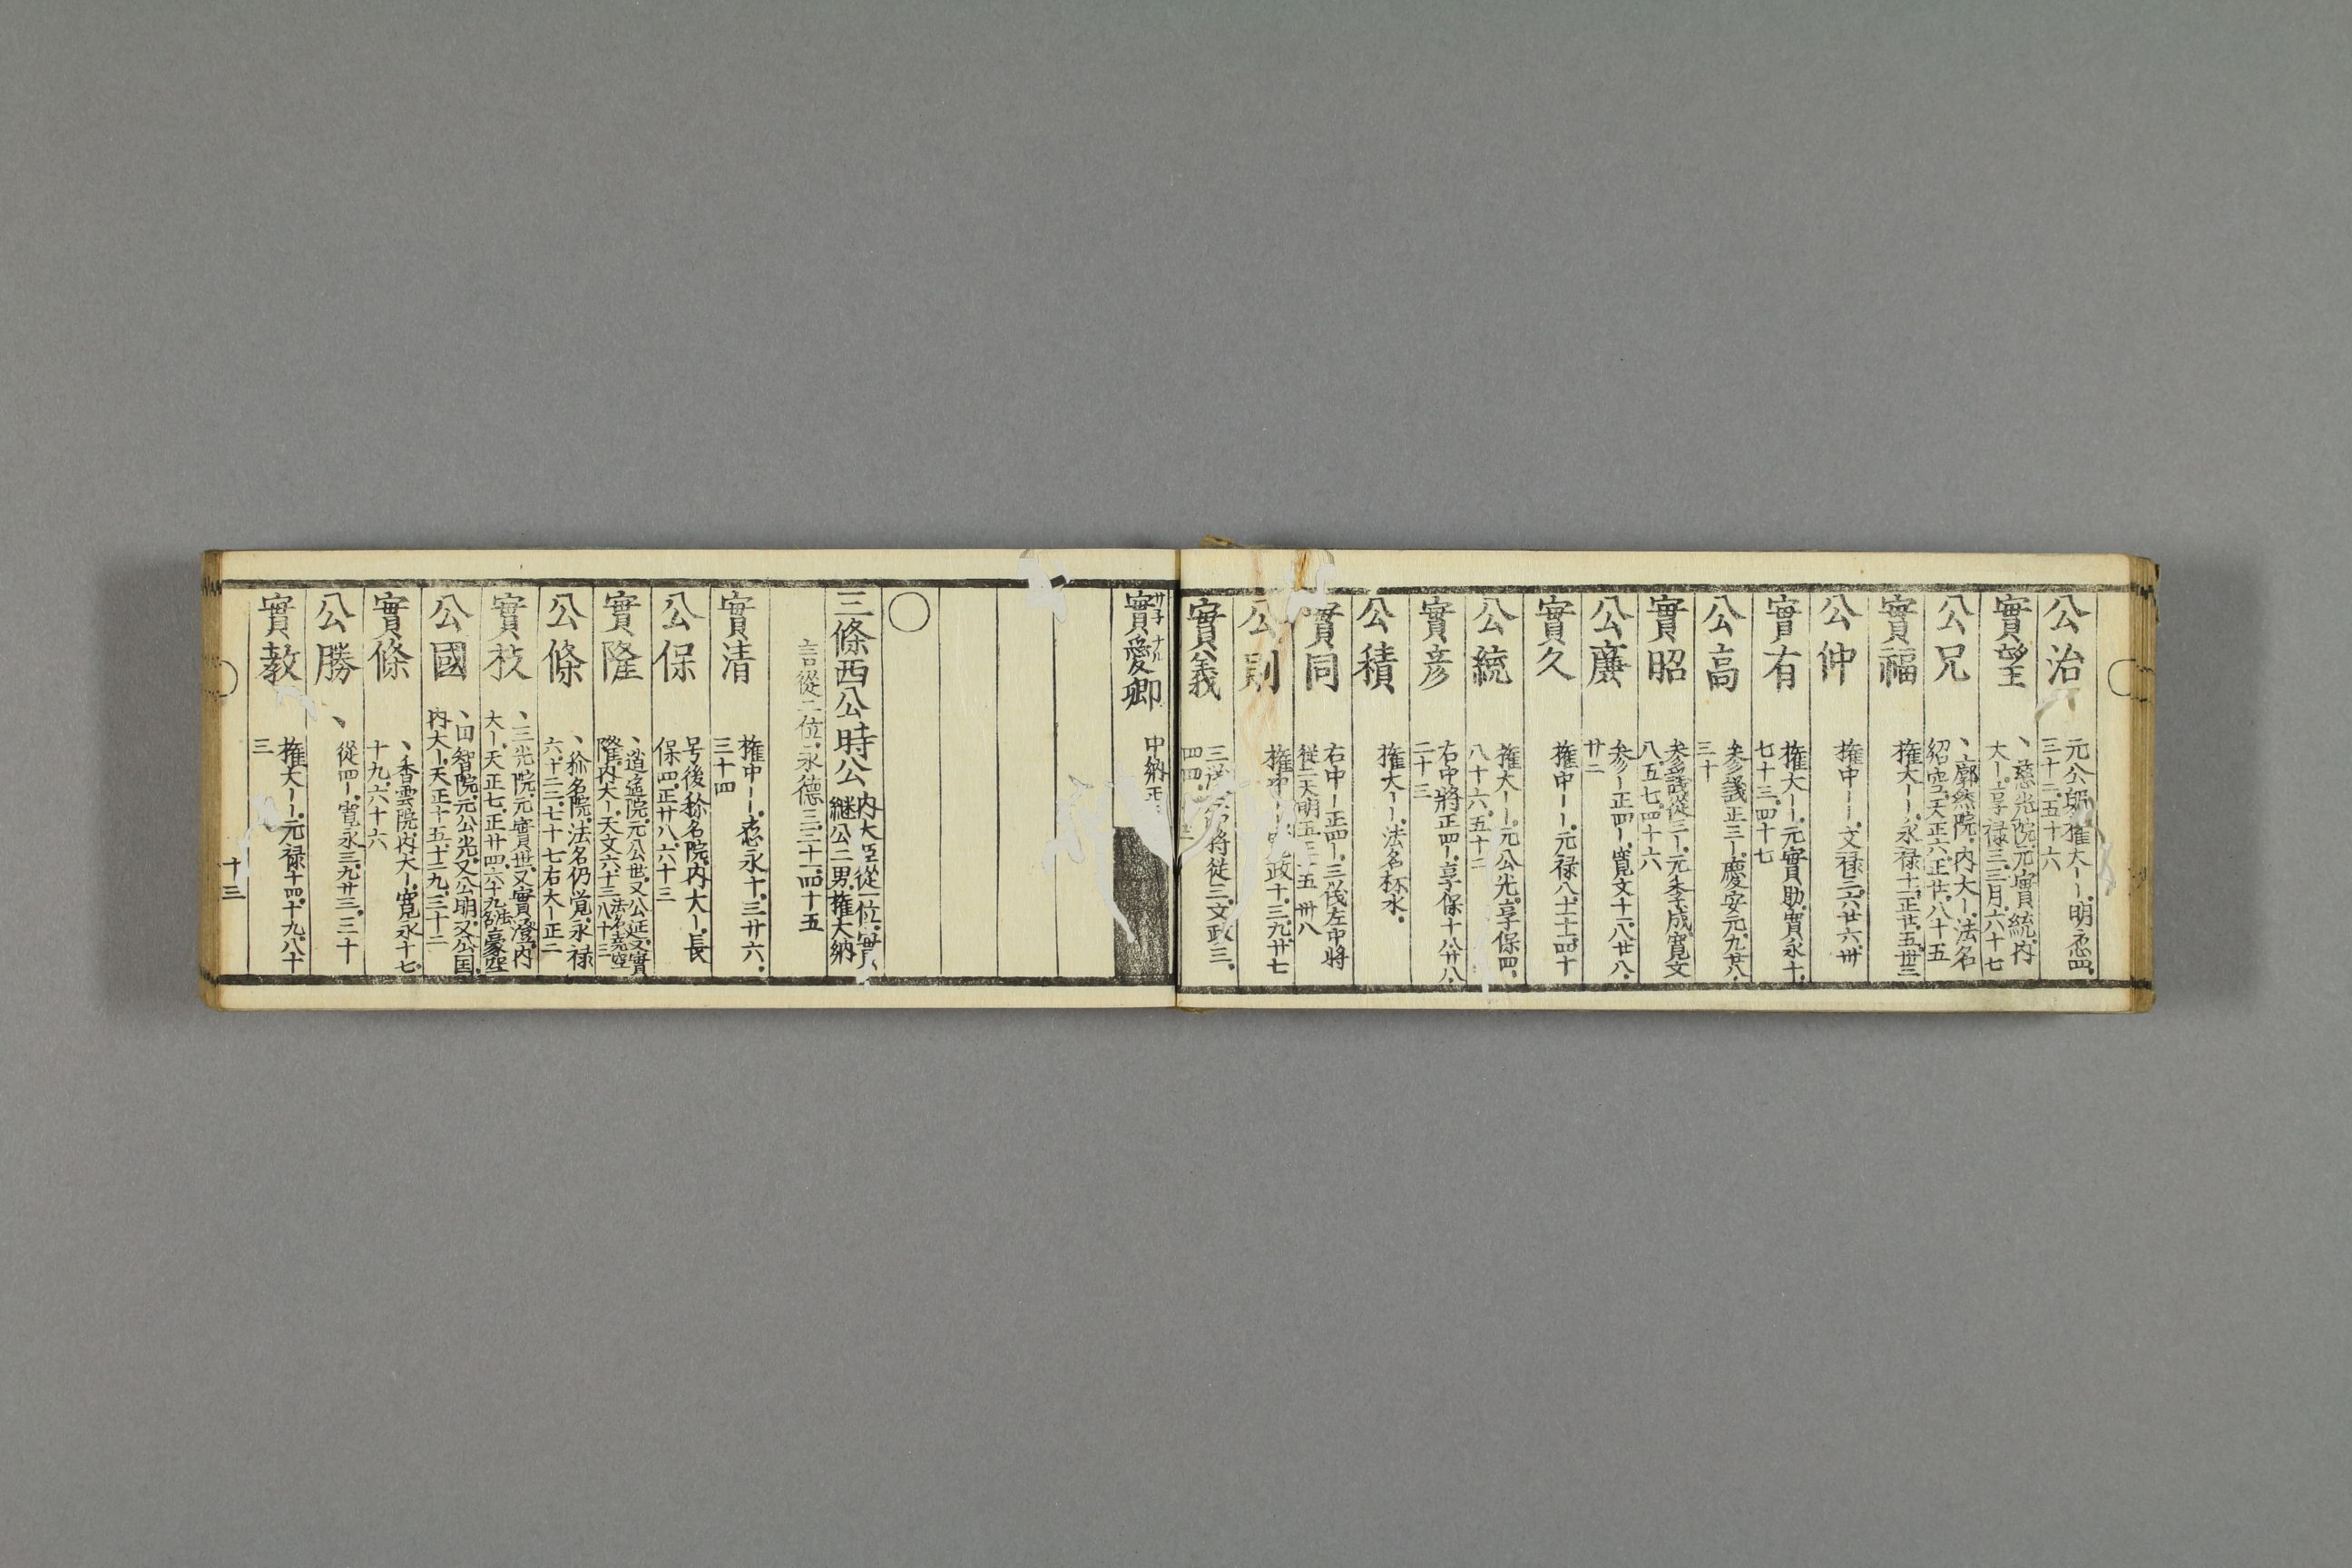 公治
元公躬権大ーー明応四
三十二五十六
實望
慈光院元實統内
大ー享禄三三月六十七
公兄
廓然院内大ー法名
紹空天正六正廿八十五
實福
権大ーー永禄十一正廿五卅三
公仲
権中ーー文禄三六廿六卅
實有
権大ーー元實助寛永十
七十三四十七
公高
参議正三ー慶安元九廿六
三十
實昭
参議従三ー元季成寛文
八五七四十六
公廉
参ー正四ー寛文十一八廿八
廿二
實久
権中ーー元禄八十一十四四十
公統
権大ーー元公光享保四
八十六五十二
實彦
右中將正四ー享保十八廿八
二十三
公積
権大ーー法名杯水
實同
右中ー正四ー三伐左中將
従三天明五三五卅八
公則
権中政十三元廿七
實義
三將從三文政三
四四
實愛卿
中納正
○
三條西公時公
内大臣從一位實
継公二男権大納
言從二位永德三三十一四十五
實清
権中ーー応永十三廿六
三十四
公保
号後称名院内大ー長
保四正廿八六十三
實隆
逍遥院元公世又公延又實
隆内大ー天文六十三法名堯空八十三
公條
称名院法名仍覚永禄
六十二三七十七右大ー正二
實枝
三光院元實世又實澄内
大ー天正七正廿四六十九法名豪空
公國
円智院元公光又公明又公国
内大ー天正十五十二九三十二
實條
香雲院内大ー寛永十七
十九六十六
公勝
從四ー寛永三九廿三三十
實教
権大ーー元禄十四十九八十
三
十三